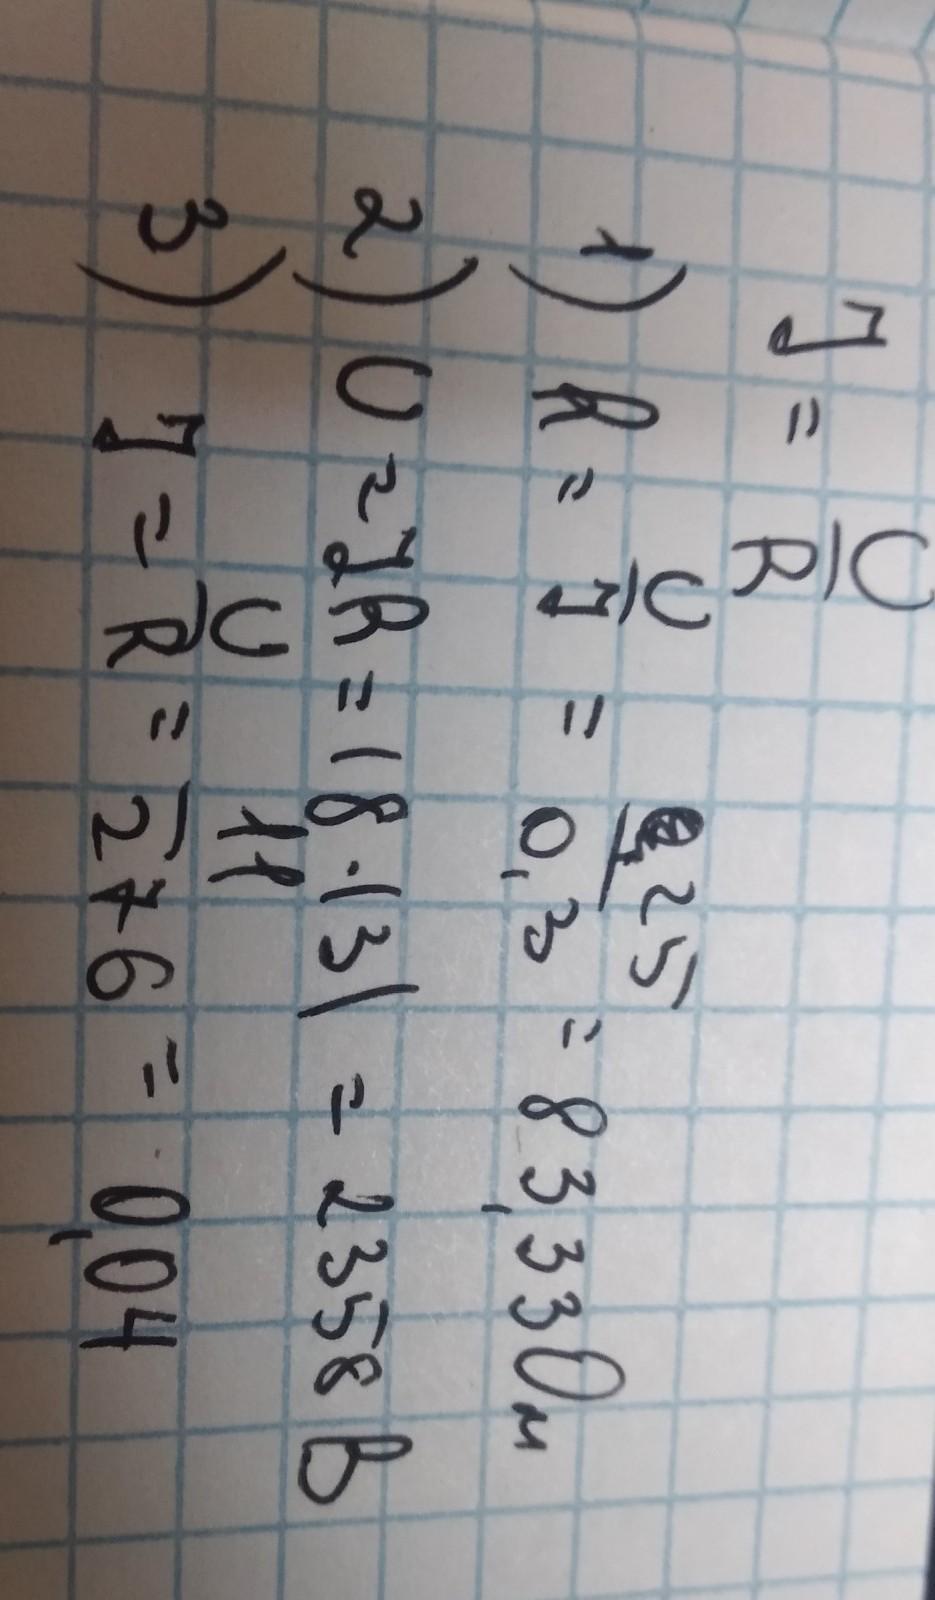 I = U/R
1) R = U/I = 25/0,3 = 83,33 Ом
2) U = IR = 18·131 = 2358 В
3) I = U/R = 11/276 = 0,04